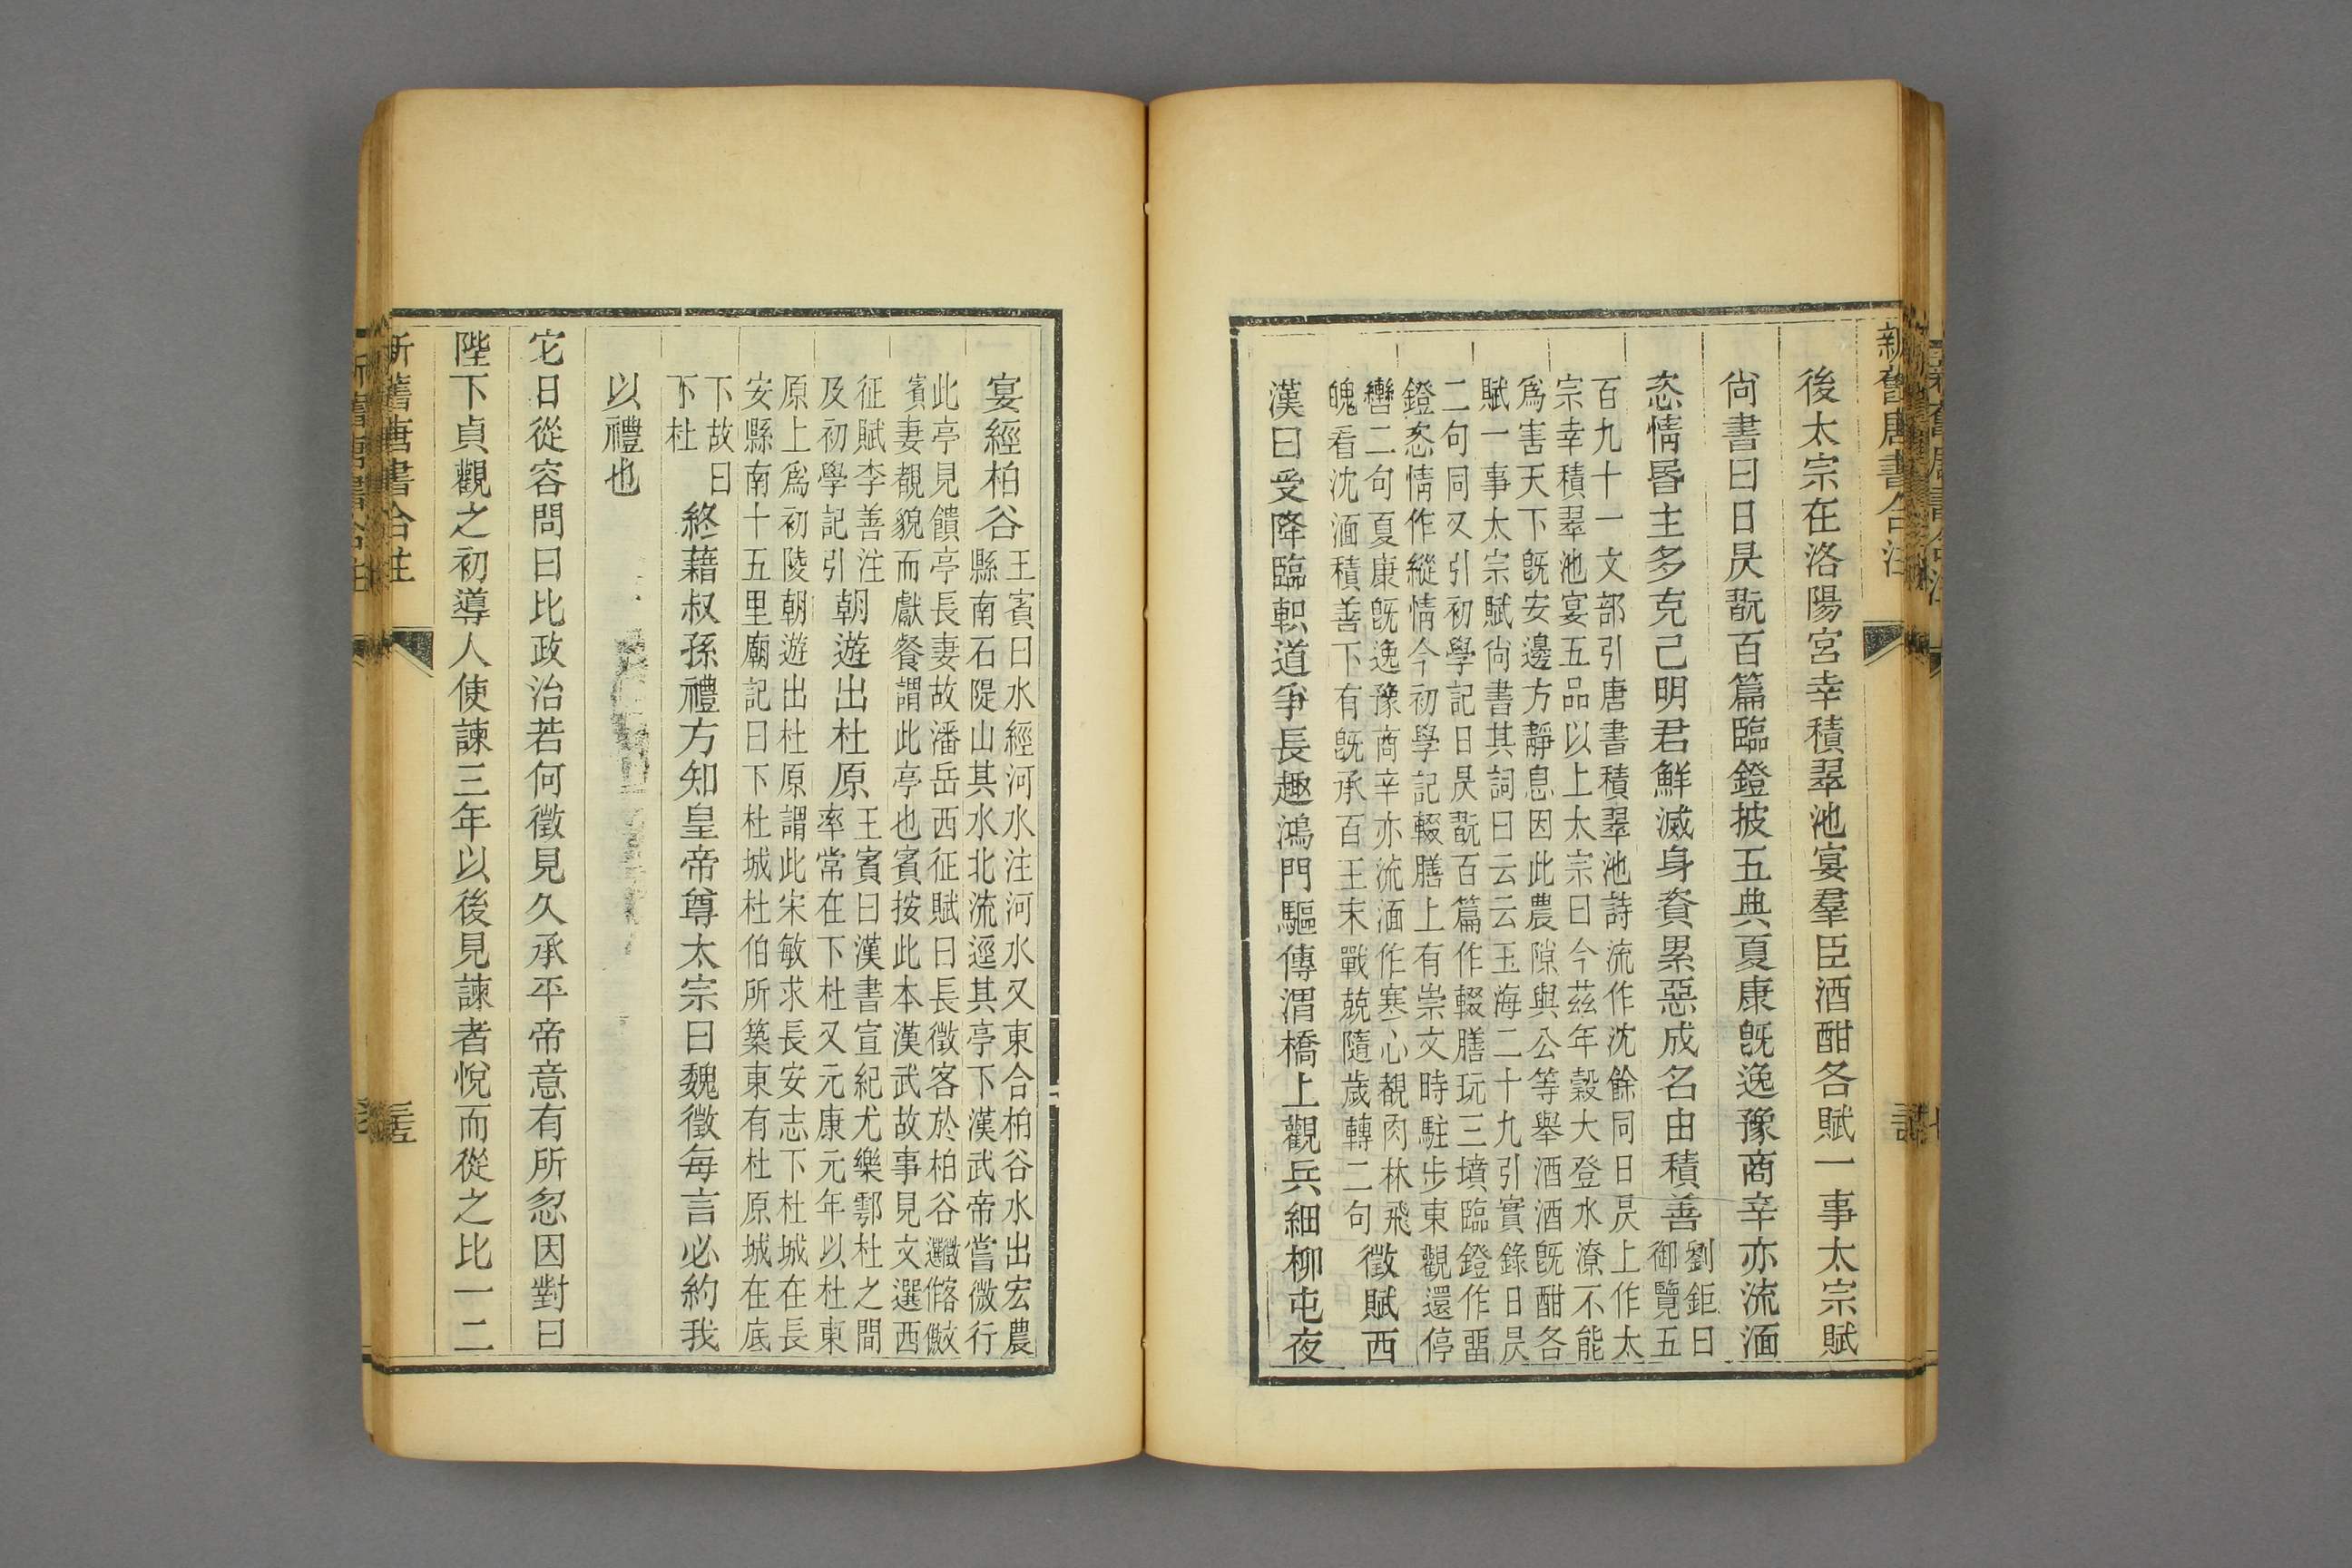 新舊唐書合注
後太宗在洛陽宮幸積翠池宴羣臣酒酣各賦一事太宗賦
尙書曰日昃翫百篇臨鐙披五典夏康旣逸豫商辛亦流湎
恣情昬主多克己明君鮮滅身資累惡成名由積善
劉鉅曰
御覽五
百九十一文部引唐書積翠池詩流作沈餘同日昃上作太
宗幸積翠池宴五品以上太宗曰今茲年穀大登水潦不能
爲害天下旣安邊方靜息因此農隙與公等舉酒酒旣酣各
賦一事太宗賦尙書其詞曰云云玉海二十九引實錄日昃
二句同又引初學記日昃翫百篇作輟膳玩三墳臨鐙作畱
鐙恣情作縱情今初學記輟膳上有崇文時駐步東觀還停
轡二句夏康旣逸豫商辛亦流湎作寒心覩肉林飛
魄看沈湎積善下有旣承百王末戰兢隨歲轉二句
徵賦西
漢曰受降臨軹道爭長趣鴻門驅傳渭橋上觀兵細柳屯夜
宴經柏谷
王賓曰水經河水注河水又東合柏谷水出宏農
縣南石隄山其水北流逕其亭下漢武帝嘗微行
此亭見饋亭長妻故潘岳西征賦曰長徵客於柏谷
賓妻覩貌而獻餐謂此亭也賓按此本漢武故事見文選西
征賦李善注
及初學記引
朝遊出杜原
王賓曰漢書宣紀尤樂鄠杜之間
率常在下杜又元康元年以杜東
原上爲初陵朝遊出杜原謂此宋敏求長安志下杜城在長
安縣南十五里廟記曰下杜城杜伯所築東有杜原城在底
下故曰
下杜
終藉叔孫禮方知皇帝尊太宗曰魏徵每言必約我
以禮也
它日從容問曰比政治若何徵見久承平帝意有所忽因對曰
陛下貞觀之初導人使諫三年以後見諫者悅而從之比一二
新舊唐書合注